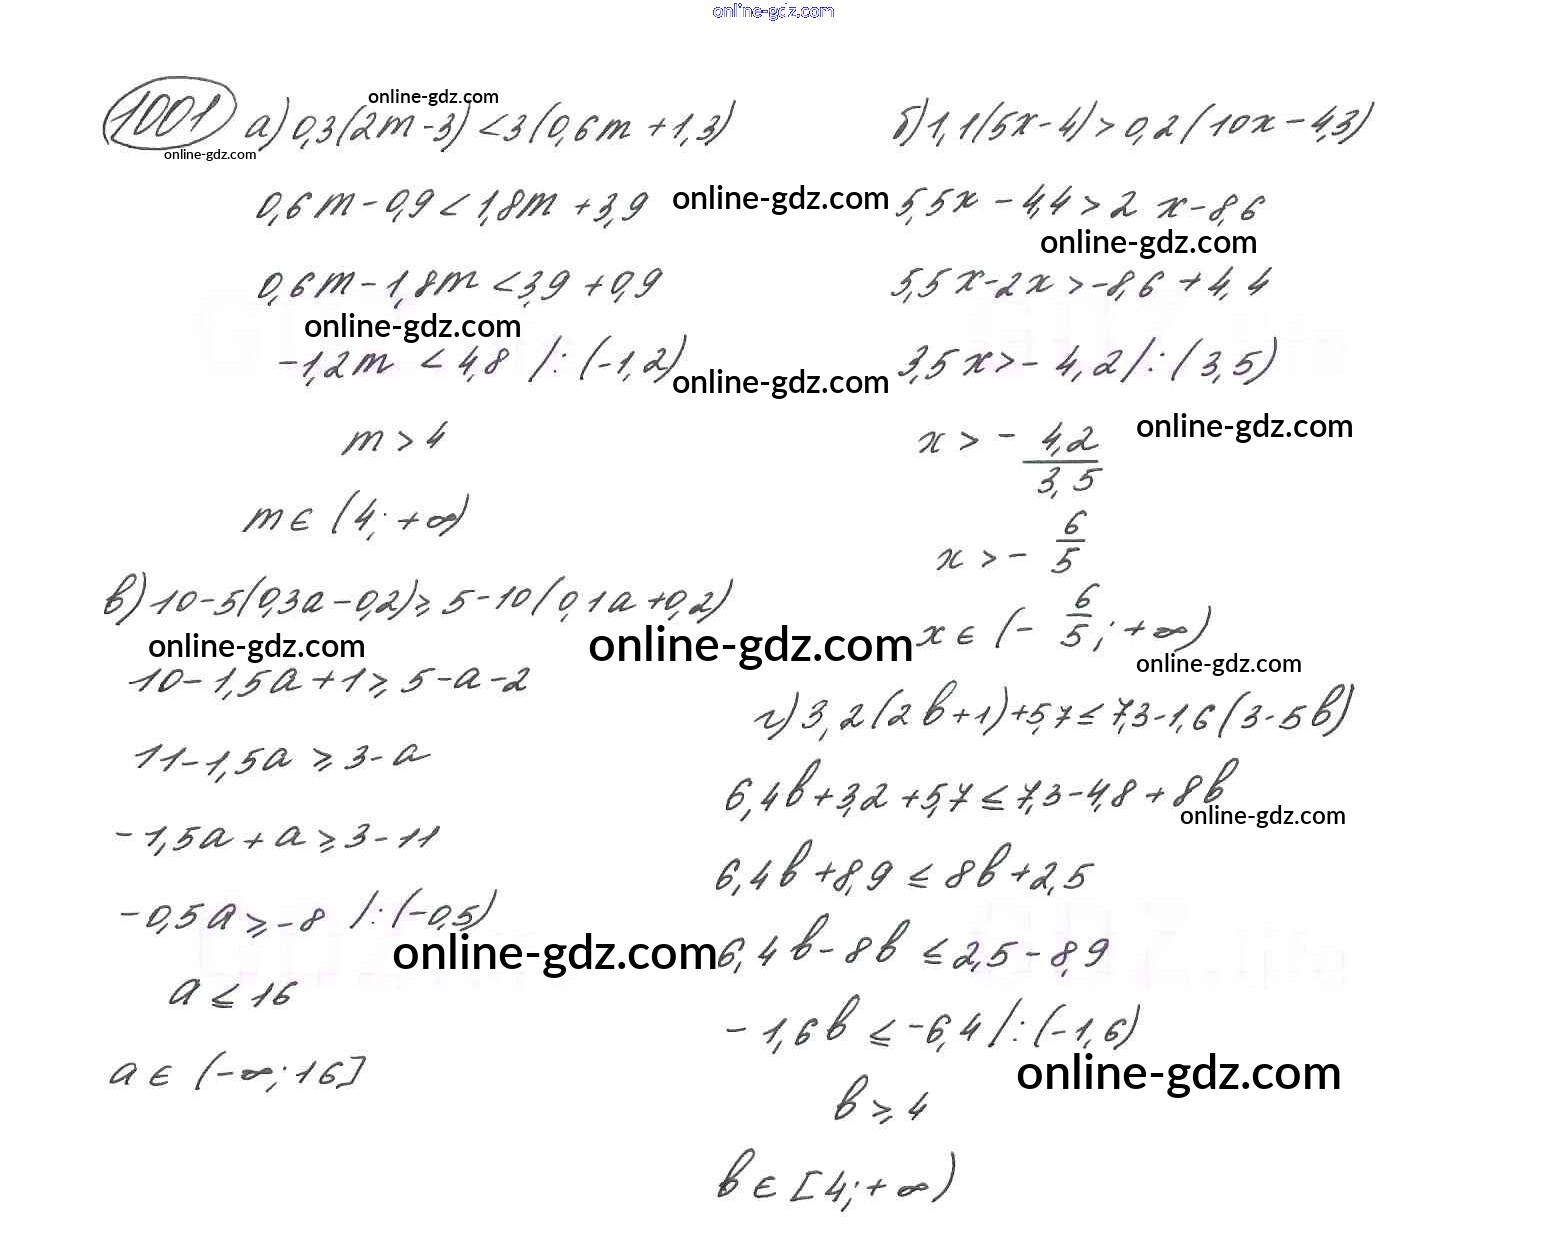 online-gdz.com
1001 а) 0,3(2m-3)<3(0,6m+1,3)
online-gdz.com
online-gdz.com
0,6m-0,9<1,8m+3,9
online-gdz.com
0,6m-1,8m<3,9+0,9
online-gdz.com
-1,2m<4,8 /:(-1,2)
online-gdz.com
m>4
m∈(4;+∞)
б) 1,1(5x-4)>0,2(10x-4,3)
5,5x-4,4>2x-8,6
online-gdz.com
5,5x-2x>-8,6+4,4
3,5x>-4,2/:(3,5)
online-gdz.com
x>-4,2/3,5
x>-6/5
x∈(-6/5;+∞)
online-gdz.com
в) 10-5(0,3a-0,2)⩾5-10(0,1a+0,2)
online-gdz.com
online-gdz.com
10-1,5a+1⩾5-a-2
11-1,5a⩾3-a
-1,5a+a⩾3-11
-0,5a⩾-8 /:(-0,5)
online-gdz.com
a⩽16
a∈(-∞;16]
г) 3,2(2b+1)+5,7⩽7,3-1,6(3-5b)
6,4b+3,2+5,7⩽7,3-4,8+8b
online-gdz.com
6,4b+8,9⩽8b+2,5
6,4b-8b⩽2,5-8,9
-1,6b⩽-6,4/:(-1,6)
online-gdz.com
b⩾4
b∈[4;+∞)